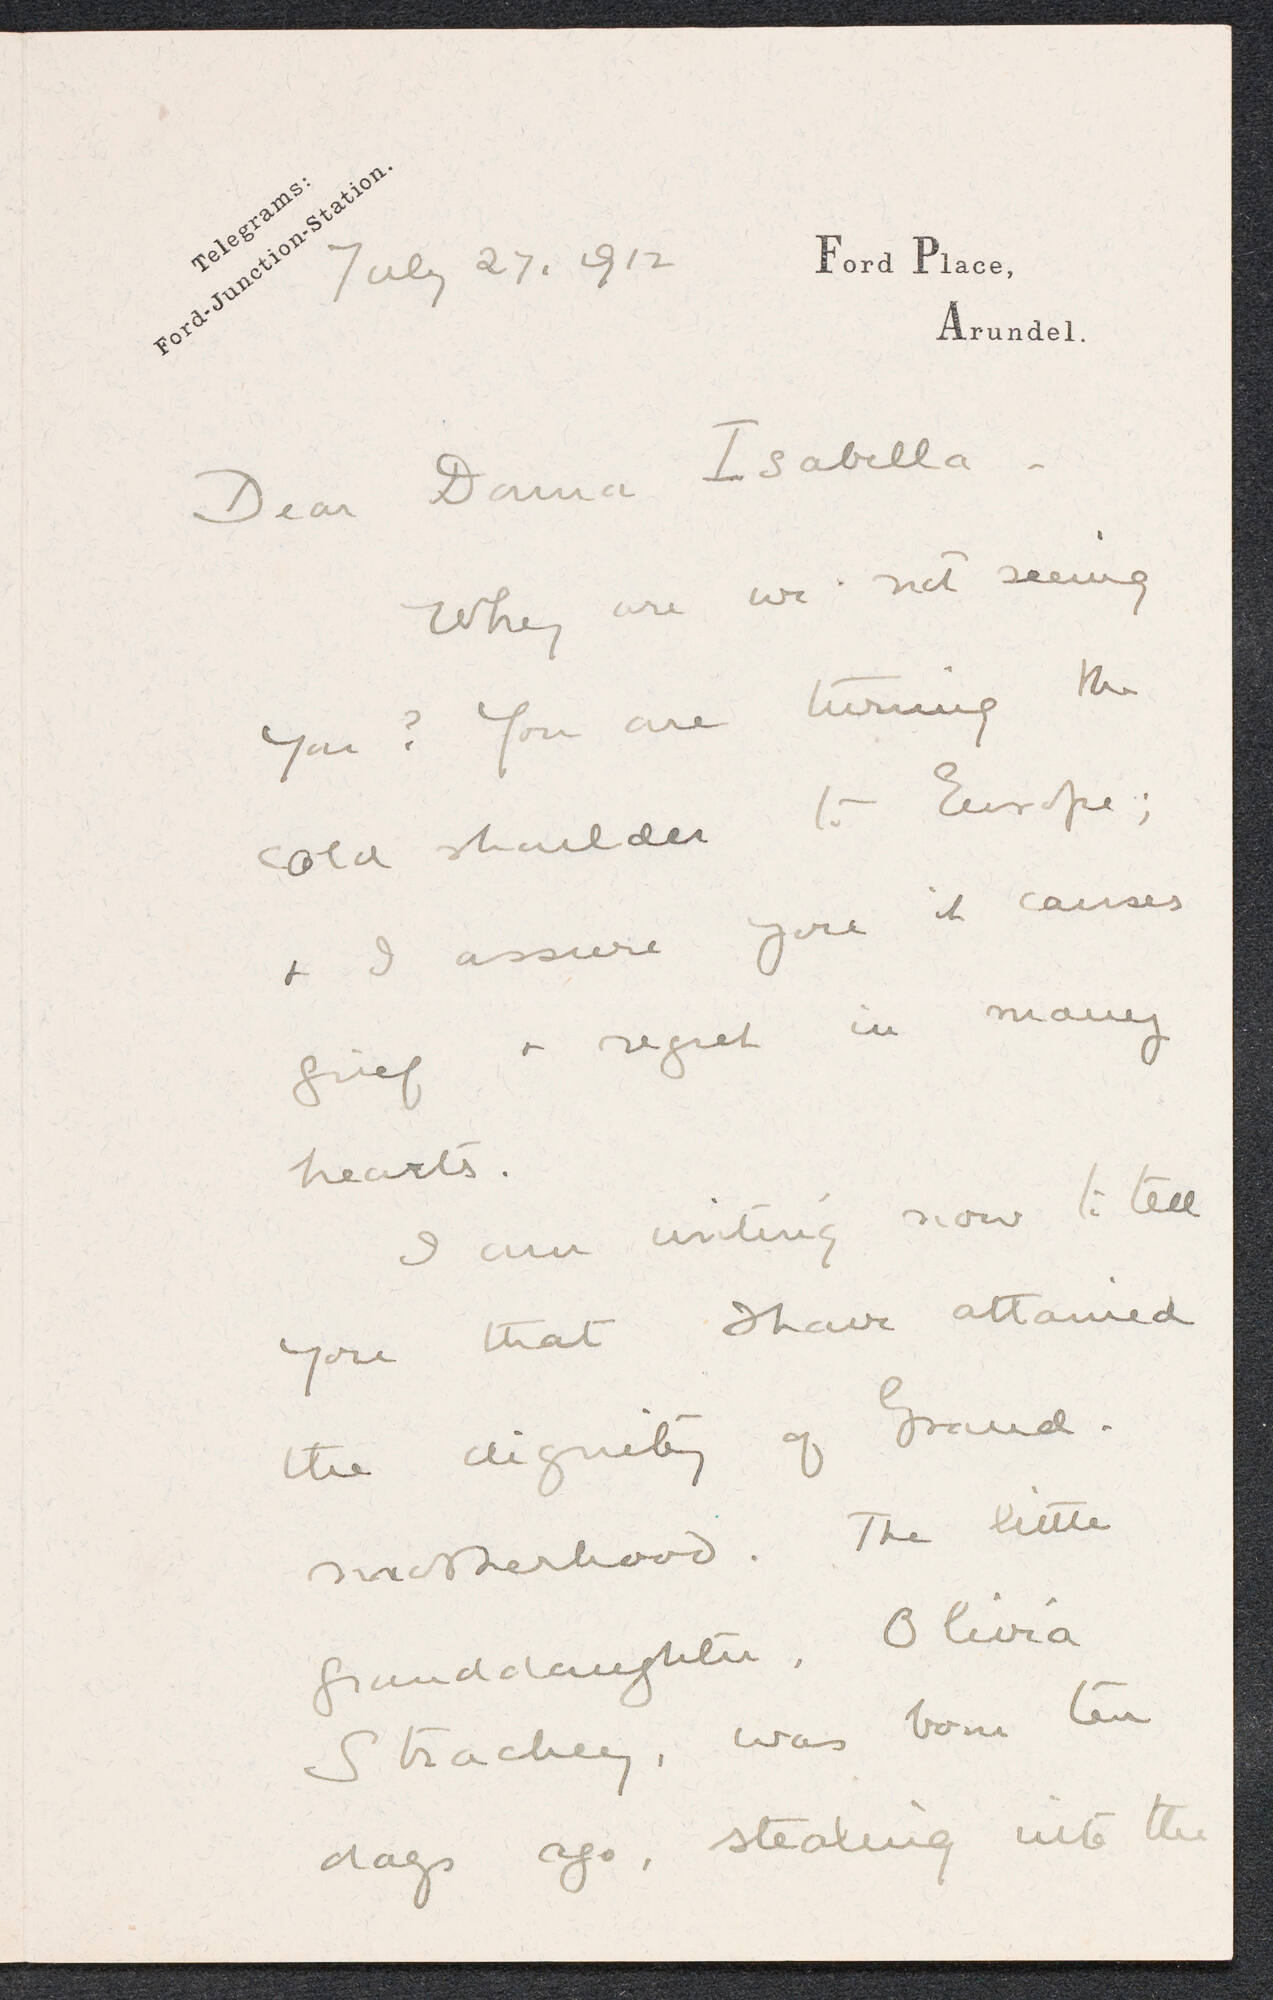 Telegrams:
Ford-Junction-Station.
July 27. 1912
Ford Place,
Arundel.
Dear Donna Isabella -
Why are we not seeing
you? You are turning the
cold shoulder to Europe;
+ I assure you it causes
grief + regret in many
hearts.
I am writing now to tell
you that I have attained
the dignity of Grand-
motherhood. The little
granddaughter, Olivia
Strachey, was born ten
days ago, stealing into the